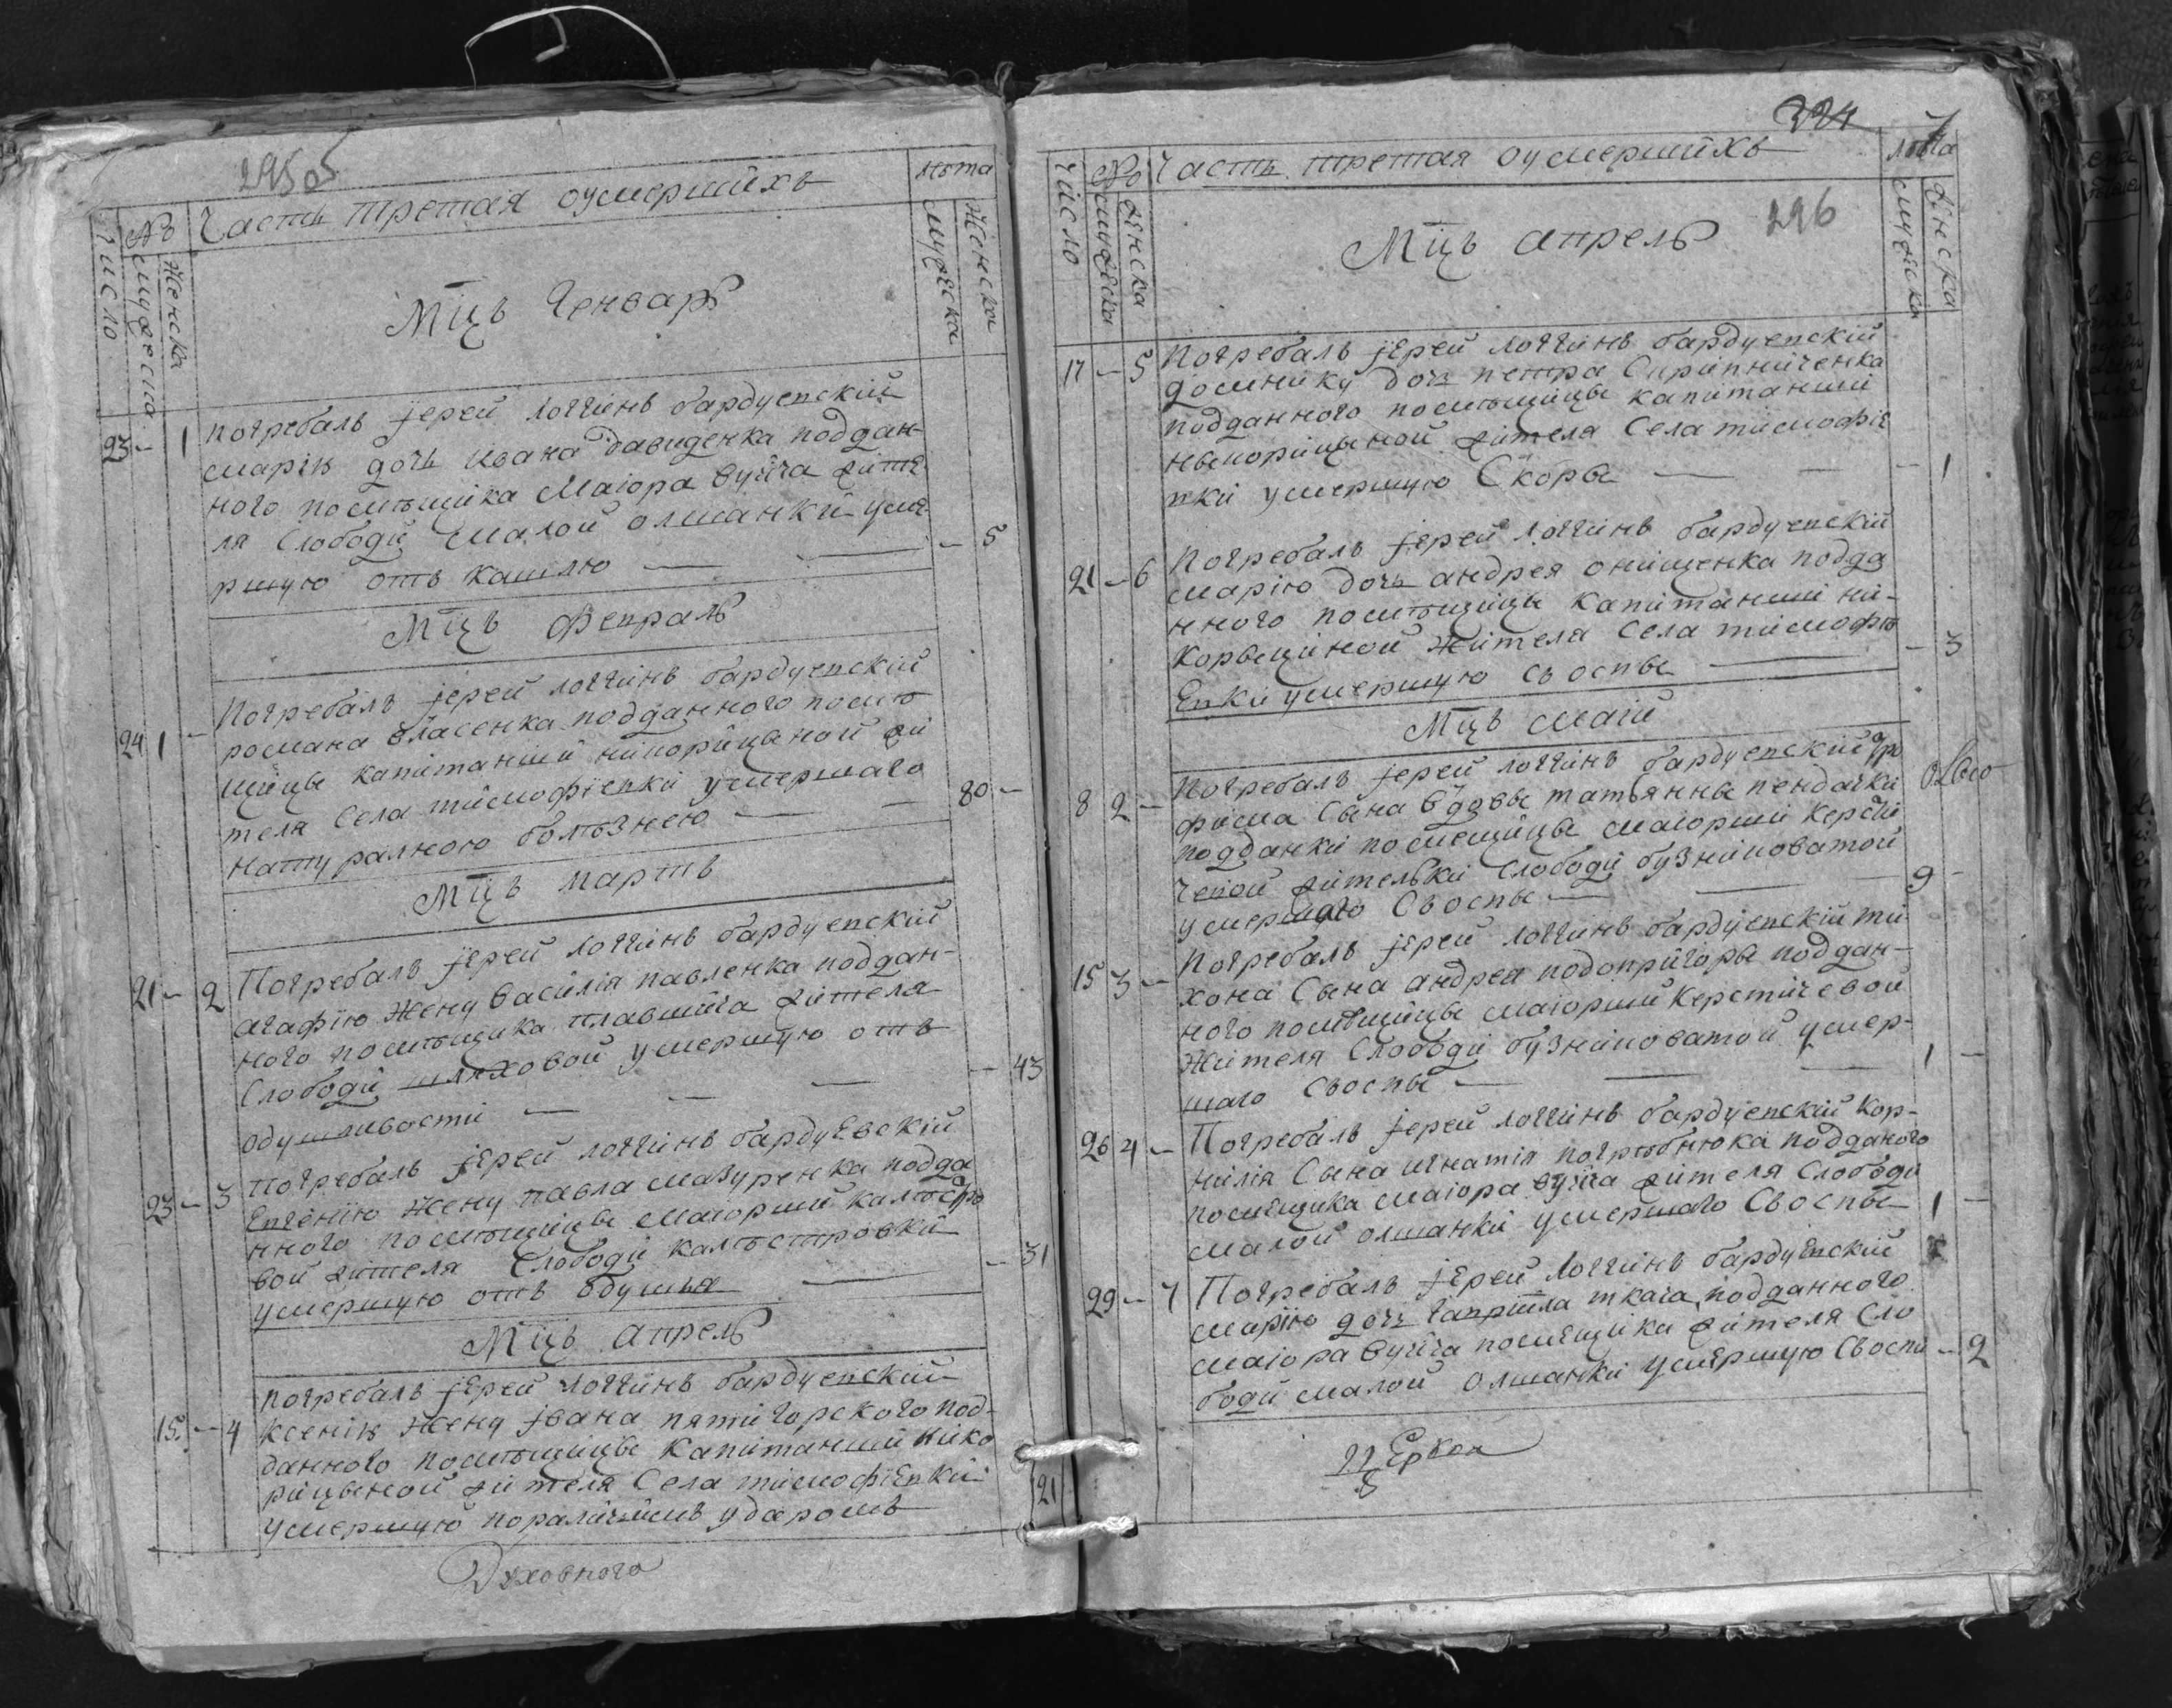 295
Число
№
мужеска
Женска
Часть третая оумершихъ
лѣта
мужеска
Женска
Мцъ Генварь
23 - 1
погребалъ јерей логгинъ бардуепскїй
марію дочь ивана давиденка поддан-
ного помѣщика Маіора вуича жите
ля Слободи малой олшанки уме
ршую отъ кашлю - 5
Мцъ Фепраль
24 1 -
Погребалъ јерей логгинъ бардуепскїй
романа власенка подданного помѣ
щицы капитаншй никорицыной жи
теля Села тимофіепки умершаго
натуралною болѣзнею 80 -
Мцъ мартъ
21 - 2
Погребалъ јерей логгинъ бардуепскїй
агафію Жену василія павленка поддан-
ного помѣщика плавшича жителя
Слободи шляховой умершую отъ
одушливости - 43
23 - 3
погребалъ јерей логгинъ бардуЕвскїй
Епгению Жену павла мазуренка подда
нного помѣщицы маіорши калѣстро
вой жителя Слободи калѣстровки
умершую отъ одушья - 31
Мцъ апрель
15 - 4
погребалъ јЕрей логгинъ бардуепскїй
ксенію Жену јвана пятигорского под-
данного помѣщицы Капитаншй нико
рицыной жителя Села тимофіЕпкїй
умершую параличимъ ударомъ 21
Духовного
324
7
Число
№
мужеска
женска
Часть третая оумершихъ
лѣта
мужеска
женска
Мцъ апрель
296
17 - 5
Погребалъ јЕрей логгинъ бардуепскїй
домнику дочь петра Скрипниченка
подданного помѣщицы капитаншй
ныкорицыной жителя Села тимофіе
пки умершую Скорбы - 1
21 - 6
Погребалъ јерей логгинъ бардуепскїй
марію дочь андрея онищенка подда
нного помѣщицы капитаншй ни-
корыциной Жителя Села тимофѣ
Епки умершую съ оспы - 3
Мцъ маій
8 2 -
Погребалъ јерей логгинъ бардуепскїй тро
фима Сына вдовы татьянны пендачки
подданки помещицы маіоршй Керсти
чепой жителки Слободи бузниноватой
умершаго Съоспы 9 -
15 3 -
Погребалъ јЕрей логгинъ бардуепскїй ти
хона Сына андрея подопригоры поддан-
ного помѣщицы маіоршй керстичевой
Жителя Слободи бузниноватой умер-
шаго Съоспы 1 -
26 4 -
Погребалъ јерей логгинъ бардуепскїй кор-
нилія Сына игнатія погрѣбнюка подданого
помещика маіора вуича жителя Слободи
малой олшанки умершаго Съоспы 1 -
29 - 7
Погребалъ јЕрей логгинъ бардуЕпскїй
марію дочь гаприила ткача подданного
маіора вуича помещика жителя Сло
боди малой олшанки умЕршую Съоспи - 2